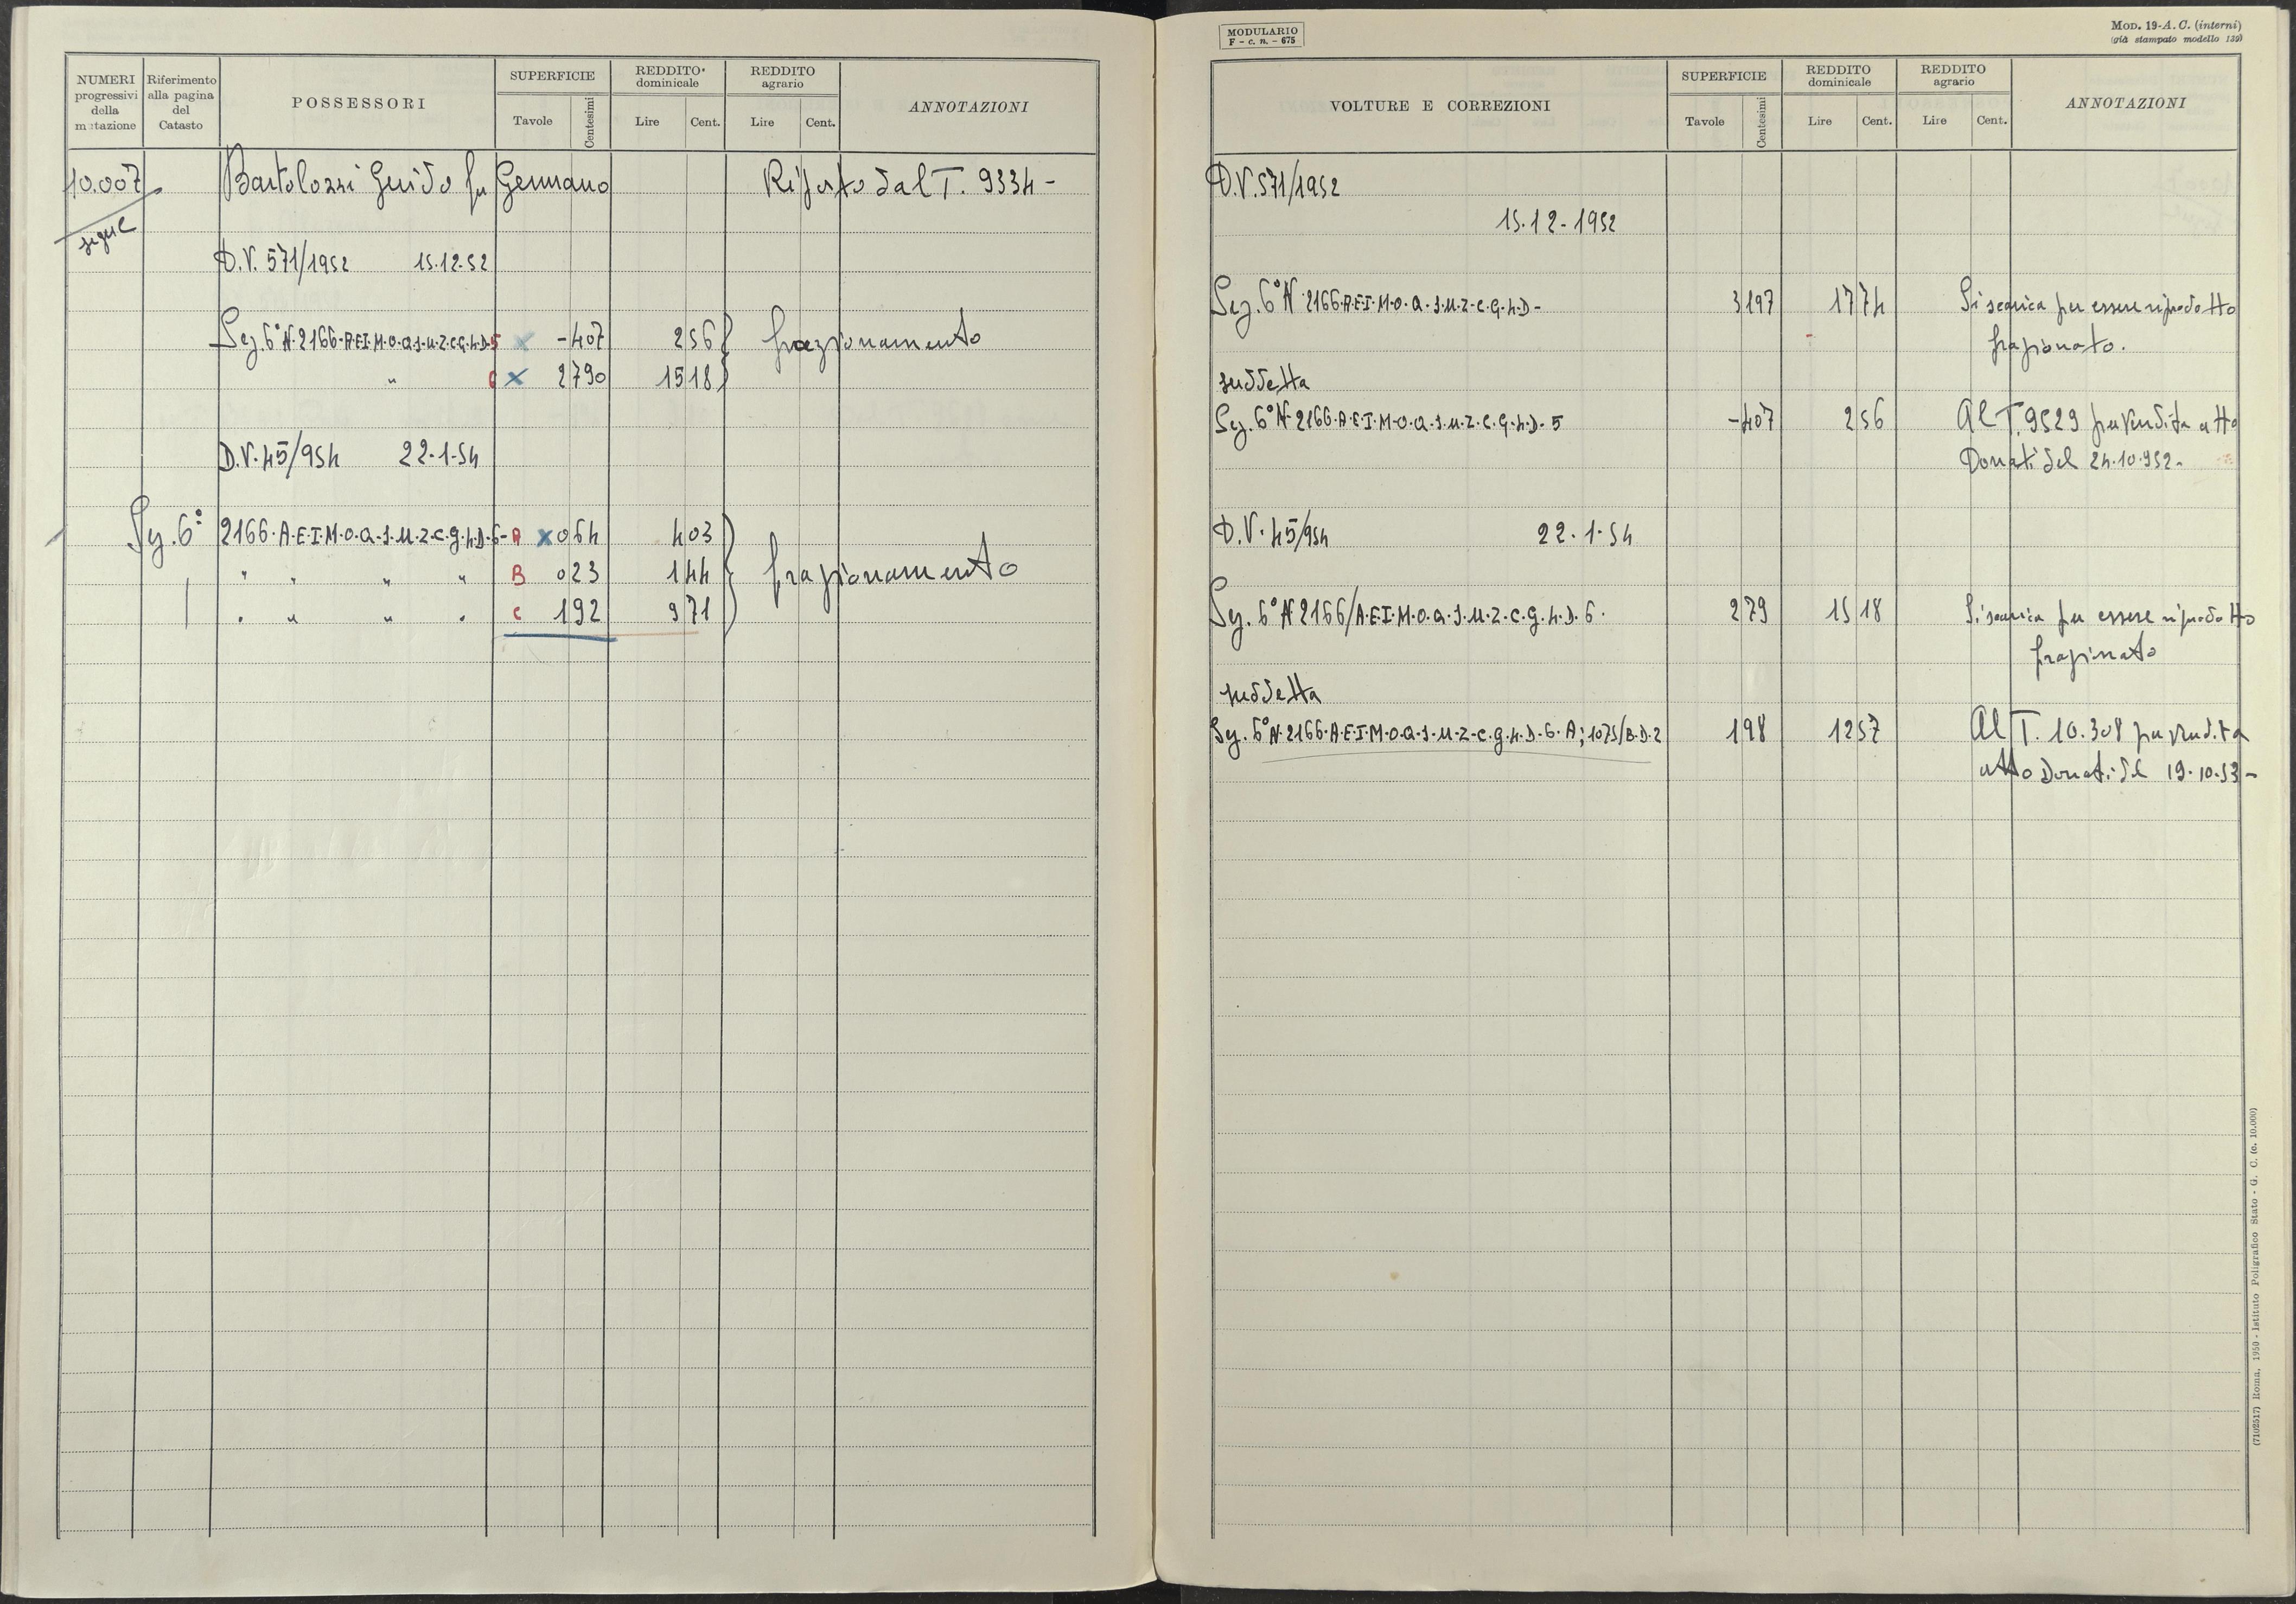 NUMERI progressivi della mutazione | Riferimento alla pagina del Catasto | POSSESSORI | SUPERFICIE Tavole Centesimi | REDDITO dominicale Lire Cent. | REDDITO agrario Lire Cent. | ANNOTAZIONI
10.007 Bartolozzi Guido fu Gennaro Riporto dal T. 9334 -
segue
D.V. 571/1952 15.12.52
Sez. 6° N. 2166-A-E-I-M-O-Q-S-U-Z-C-G-4-D-5 x -407 256 } frazionamento
" 6 x 2790 1518 }
D.V. 45/954 22-1-54
Sez. 6° 2166-A-E-I-M-O-Q-S-U-Z-C-G-4-D-6-A x 064 403 }
" " " " B 023 144 } frazionamento
" " " " C 192 971 }
MODULARIO
F - c. n. - 675
MOD. 19-A. C. (interni)
(già stampato modello 139)
VOLTURE E CORREZIONI | SUPERFICIE Tavole Centesimi | REDDITO dominicale Lire Cent. | REDDITO agrario Lire Cent. | ANNOTAZIONI
D.V. 571/1952
15.12-1952
Sez. 6° N. 2166-A-E-I-M-O-Q-S-U-Z-C-G-4-D- 3197 1774 Si scarica per essere riprodotto
frazionato.
suddetta
Sez. 6° N. 2166-A-E-I-M-O-Q-S-U-Z-C-G-4-D-5 -407 256 Al T. 9529 per vendita atto
Donati del 24.10.952-
D.V. 45/954 22-1-54
Sez. 6° N 2166/A-E-I-M-O-Q-S-U-Z-C-G-4-D-6. 279 1518 Si scarica per essere riprodotto
frazionato
suddetta
Sez. 6° N. 2166-A-E-I-M-O-Q-S-U-Z-C-G-4-D-6-A; 1075/B-D-2 198 1257 Al T. 10.308 per vendita
atto Donati del 19-10-53-
(7102517) Roma, 1950 - Istituto Poligrafico Stato - G. C. (c. 10.000)